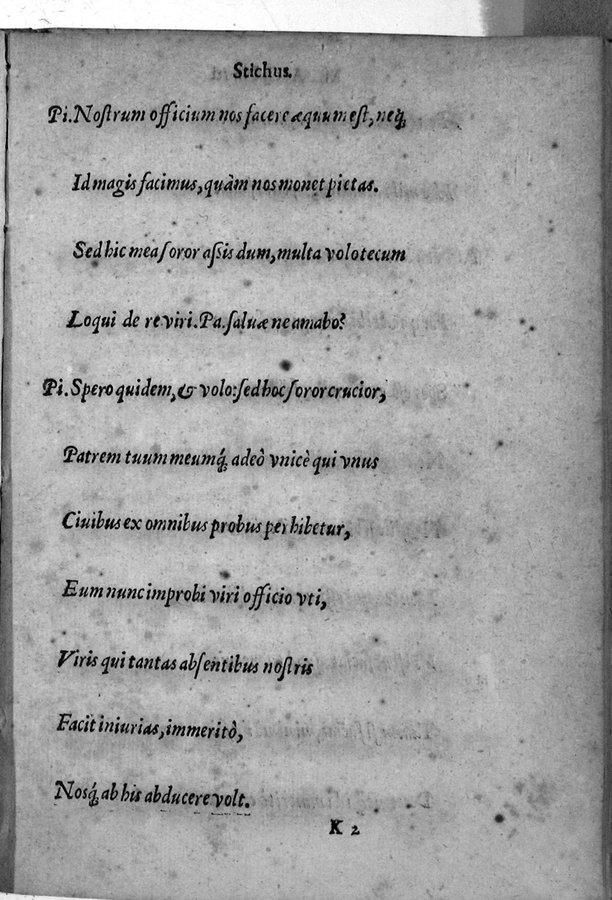 Stichus.
Pi. Noſtrum officium nos facere æquum eſt, neq́;
Id magis facimus, quàm nos monet pietas.
Sed hic mea ſoror aſsis dum, multa volo tecum
Loqui de re viri. Pa. ſaluæ ne amabo?
Pi. Spero quidem, & volo: ſed hoc ſoror crucior,
Patrem tuum meumq́; adeò vnicè qui vnus
Ciuibus ex omnibus probus perhibetur,
Eum nunc improbi viri officio vti,
Viris qui tantas abſentibus noſtris
Facit iniurias, immeritò,
Nosq́; ab his abducere volt.
K 2